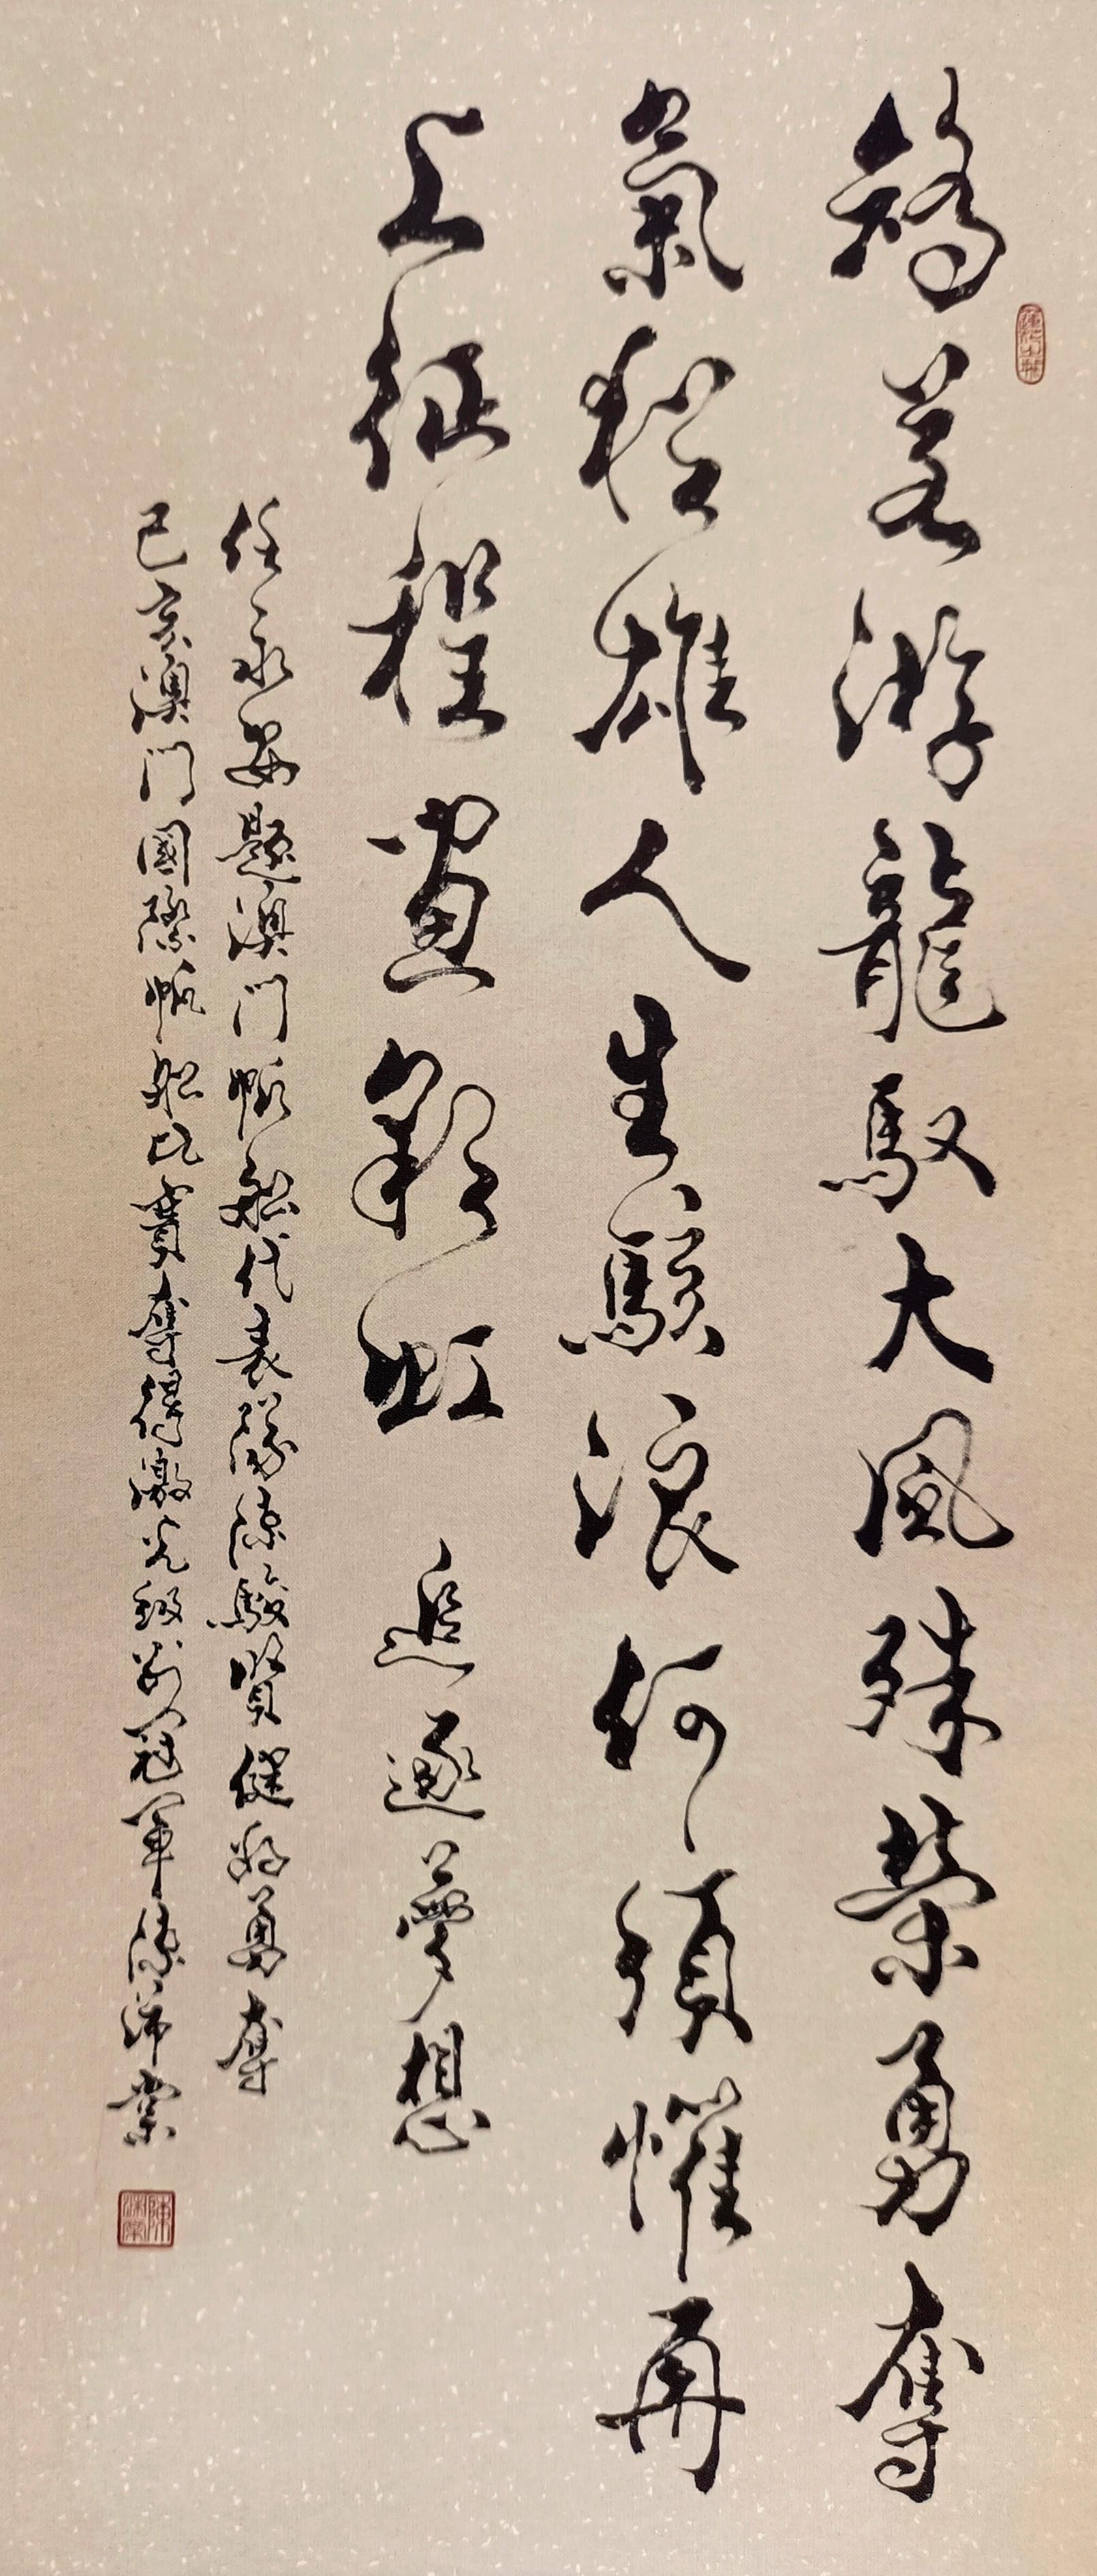 矯若游龍馭大風殊榮勇奪
氣稱雄人生駭浪何須懼再
上征程畫彩虹 追逐夢想
任永安題澳門帆船代表隊陳駿賢健將勇奪
己亥澳門國際帆船比賽奪得激光級別冠軍陳沛棠